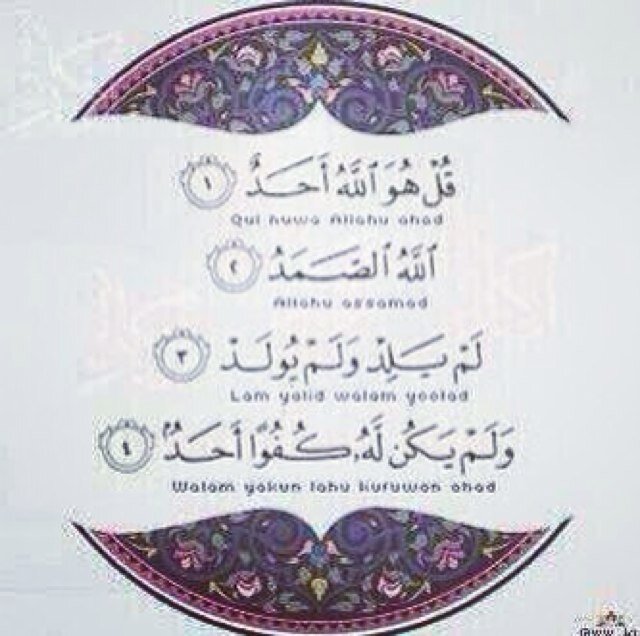 قُلْ هُوَ ٱللَّهُ أَحَدٌ ١
Qul huwa Allahu ahad
ٱللَّهُ ٱلصَّمَدُ ٢
Allahu assamad
لَمْ يَلِدْ وَلَمْ يُولَدْ ٣
Lam yalid walam yoolad
وَلَمْ يَكُن لَّهُۥ كُفُوًا أَحَدٌۢ ٤
Walam yakun lahu kufuwan ahad